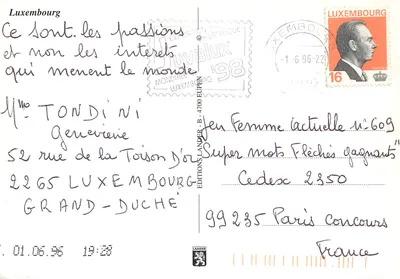 Luxembourg
Ce sont les passions
et non les interets
qui menent le monde
Mme TONDINI
Genevieve
52 rue de la Toison D'or
2265 LUXEMBOURG
GRAND-DUCHÉ
01.06.96 19:28
EDITIONS LANDER - B - 4700 EUPEN
98
LUXEMBOURG
-1-6-96-22
LUXEMBOURG
16
Jeu Femme Actuelle n°609
"Super mots Fléchés gagnants"
Cedex 2350
99235 Paris Concours
France